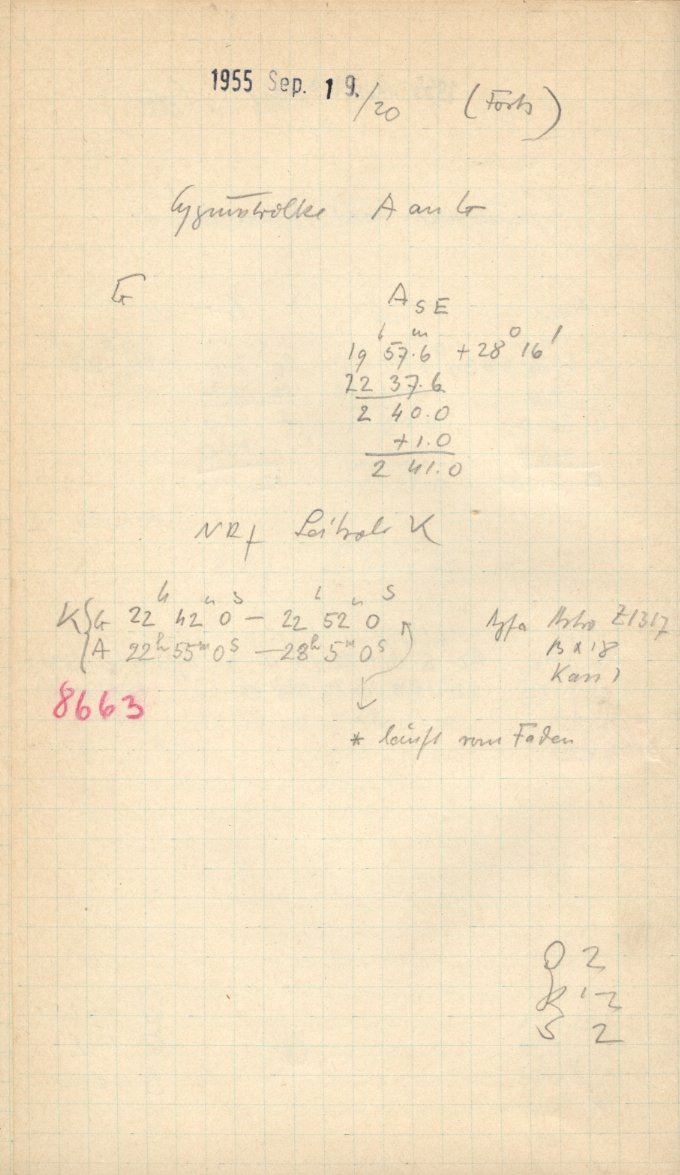 1955 Sep. 19./20 (Forts)
Cygnuswolke A an G
G
A SE
19h 57m.6 +28° 16'
22 37.6
2 40.0
+1.0
2 41.0
K { G 22h 42m 0s – 22h 52m 0s
A 22h 55m 0s – 28h 5m 0s
Agfa Astro Z1317
Kass
8663
* läuft vom Faden
2
2
S 2